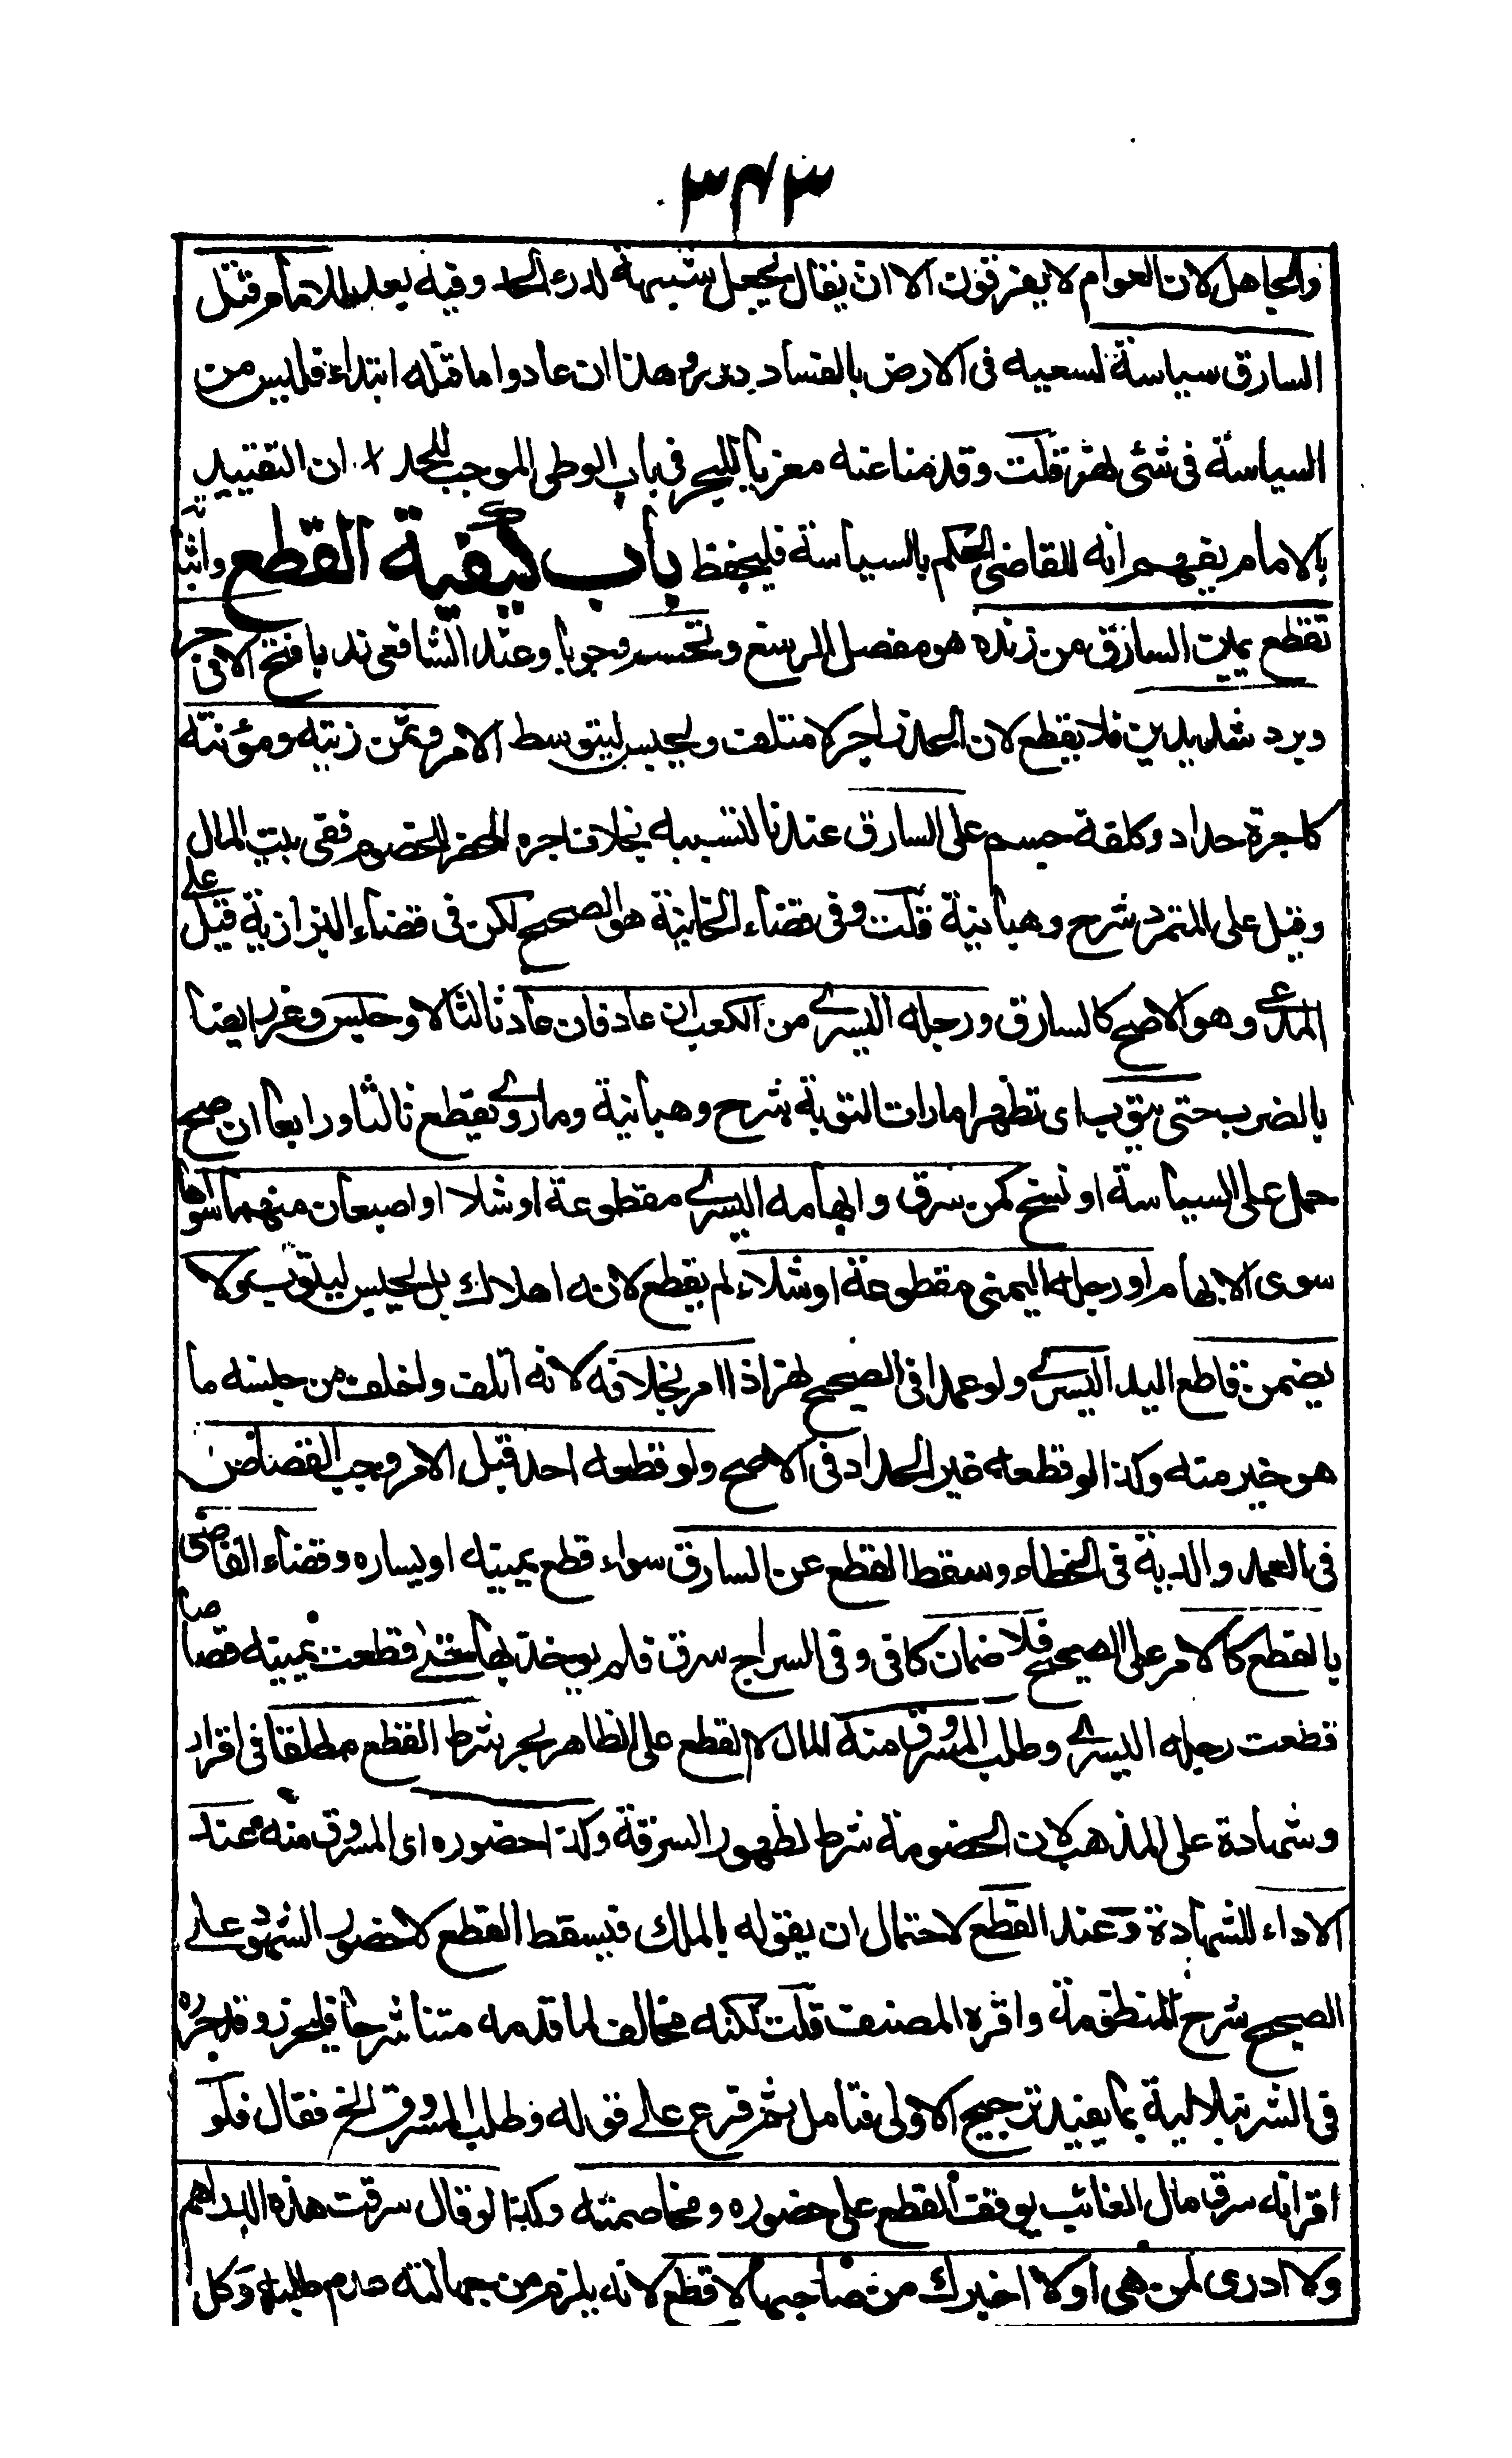 ٣٤٣
والجاهل لان العوام لا يفرقون الا ان يقال يجعل شبهة لدرء الحد وفيه بعد للامام قتل
السارق سياسة لسعيه فى الارض بالفساد درر وهذا ان عاد واما قتله ابتداء فليس من
السياسة فى شئ نهر قلت وقدمنا عنه معزيا للبحر فى باب الوطئ الموجب للحد ان التقييد
بالامام يفهم انه للقاضى الحكم بالسياسة فليحفظ باب كيفية القطع واثباته
تقطع يمين السارق من زنده هو مفصل الرسغ وتحسم وجوبا وعند الشافعى ندبا فتح الا فى حر
وبرد شديدين فلا يقطع لان الحد زاجر لا متلف ويحبس ليتوسط الامر وثمن زيته ومؤنته
كاجرة حداد وكلفة حسم على السارق عندنا لتسببه بخلاف اجرة المحضر للخصوم ففى بيت المال
وقيل على المتمرد شرح وهبانية قلت وفى قضاء الخانية هو الصحيح لكن فى قضاء البزازية قيل على
المدعى وهو الاصح كالسارق ورجله اليسرى من الكعب ان عاد فان عاد ثالثا لا وحبس وعزر ايضا
بالضرب حتى يتوب اى تظهر امارات التوبة شرح وهبانية وما روى يقطع ثالثا ورابعا ان صح
حمل على السياسة او نسخ كمن سرق وابهامه اليسرى مقطوعة او شلا او اصبعان منها سواها
سوى الابهام او رجله اليمنى مقطوعة او شلاء لم يقطع لانه اهلاك بل يحبس ليتوب ولا
يضمن قاطع اليد اليسرى ولو عمدا فى الصحيح نهر اذا امر بخلافه لانه اتلف واخلف من جنسه ما
هو خير منه وكذا لو قطعه غير الحداد فى الاصح ولو قطعه احد قبل الامر وجب القصاص
فى العمد والدية فى الخطاء وسقط القطع عن السارق سواء قطع يمينه او يساره وقضاء القاضى
بالقطع كالامر على الصحيح فلا ضمان كافى وفى السراج سرق فلم يوخذ بها حتى قطعت يمينه قصاصا
قطعت رجله اليسرى وطلب المسروق منه المال لا القطع على الظاهر بحر شرط القطع مطلقا فى اقرار
وشهادة على المذهب لان الخصومة شرط لظهور السرقة وكذا حضوره اى المسروق منه عند
الاداء للشهادة وعند القطع لاحتمال ان يقر له بالملك فيسقط القطع لا حضور الشهود على
الصحيح شرح المنظومة واقره المصنف قلت لكنه مخالف لما قدمه متنا شرحا فليحرر وقد حرره
فى الشرنبلالية بما يفيد ترجيح الاولى فتامل ثم فرع على قوله وطلب المسروق الخ فقال فلو
اقر انه سرق مال الغائب يوقف القطع على حضوره ومخاصمته وكذا لو قال سرقت هذه الدراهم
ولا ادرى لمن هى او لا اخبرك من صاحبها لا قطع لانه يلزم من جهالته عدم طلبه وكل